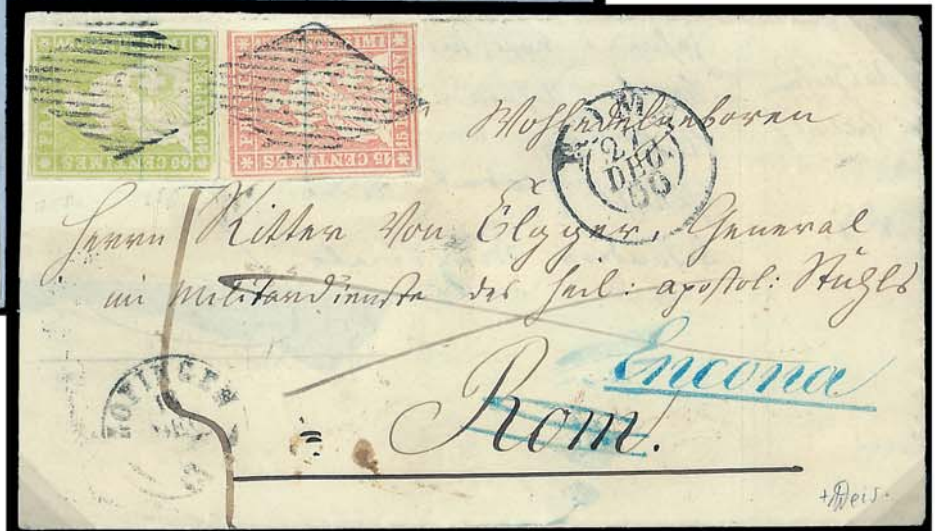 40 CENTIMES
15 CENTIMES
Wohledelgeboren
27
DEC.
Herrn Ritter Von Elgger, General
im Militardienste des heil: apostol: Stuhls
Encona
Rom.
ZOFINGEN